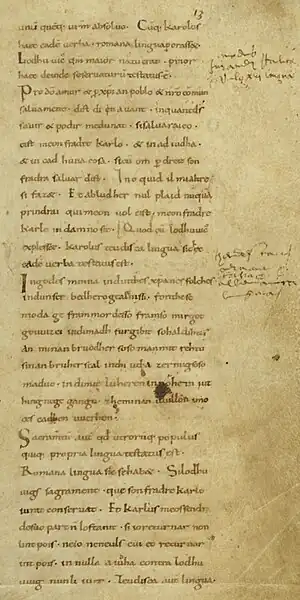 13
unū quēq; ur̄m absoluo. Cūq; karolus
haec eadē uerba romana lingua porasset.
Lodhuuic qm̄ maior natu erat prior
haec deinde se seruaturū testatus ē.
Pro dō amur & p xp̄ian poblo & nr̄o cōmun
saluament. dist di en auant. inquantds
sauir & podir medunat. sisaluaraieo
cist meonfradre karlo. & in aiudha
& in cad huna cosa. sicū om p dreit son
fradra saluar dist. Ino quid il mialtre
si faz&. Et abludher nul plaid nūquā
prindrai qui meon uol cist meonfradre
karle in damno sit. Quod cū lodhuuic
explesset. karolus teudisca lingua sic hec
eadē uerba testatus est.
Ingodes minna indinthes xp̄anes folches
indunser bedhero gealtnissi. fonthese
moda ge frammordesso framso mirgot
geuuizci indimadh furgibit sohaldihtes
an minan bruodher soso manmit rehtu
sinan bruher scal inthi utha zermigsoso
maduo. indimit luheren innohein iut
hing nege gango. zheminan uuillon imo
ce scadhen uuerhen.
Sacramentū autē qd utrorūq; populus
quiq; propria lingua testatus est.
Romana lingua sic se hab&. Silodhu
uigs sagrament. que son fradre karlo
iurat conseruat. Et karlus meossendra
desuo part n lostanit. si ioreturnar non
lint pois. neio neneuls cui eo returnar
int pois. in nulla aiudha contra lodhu
uuig nunli iuer. Teudisca aut lingua.